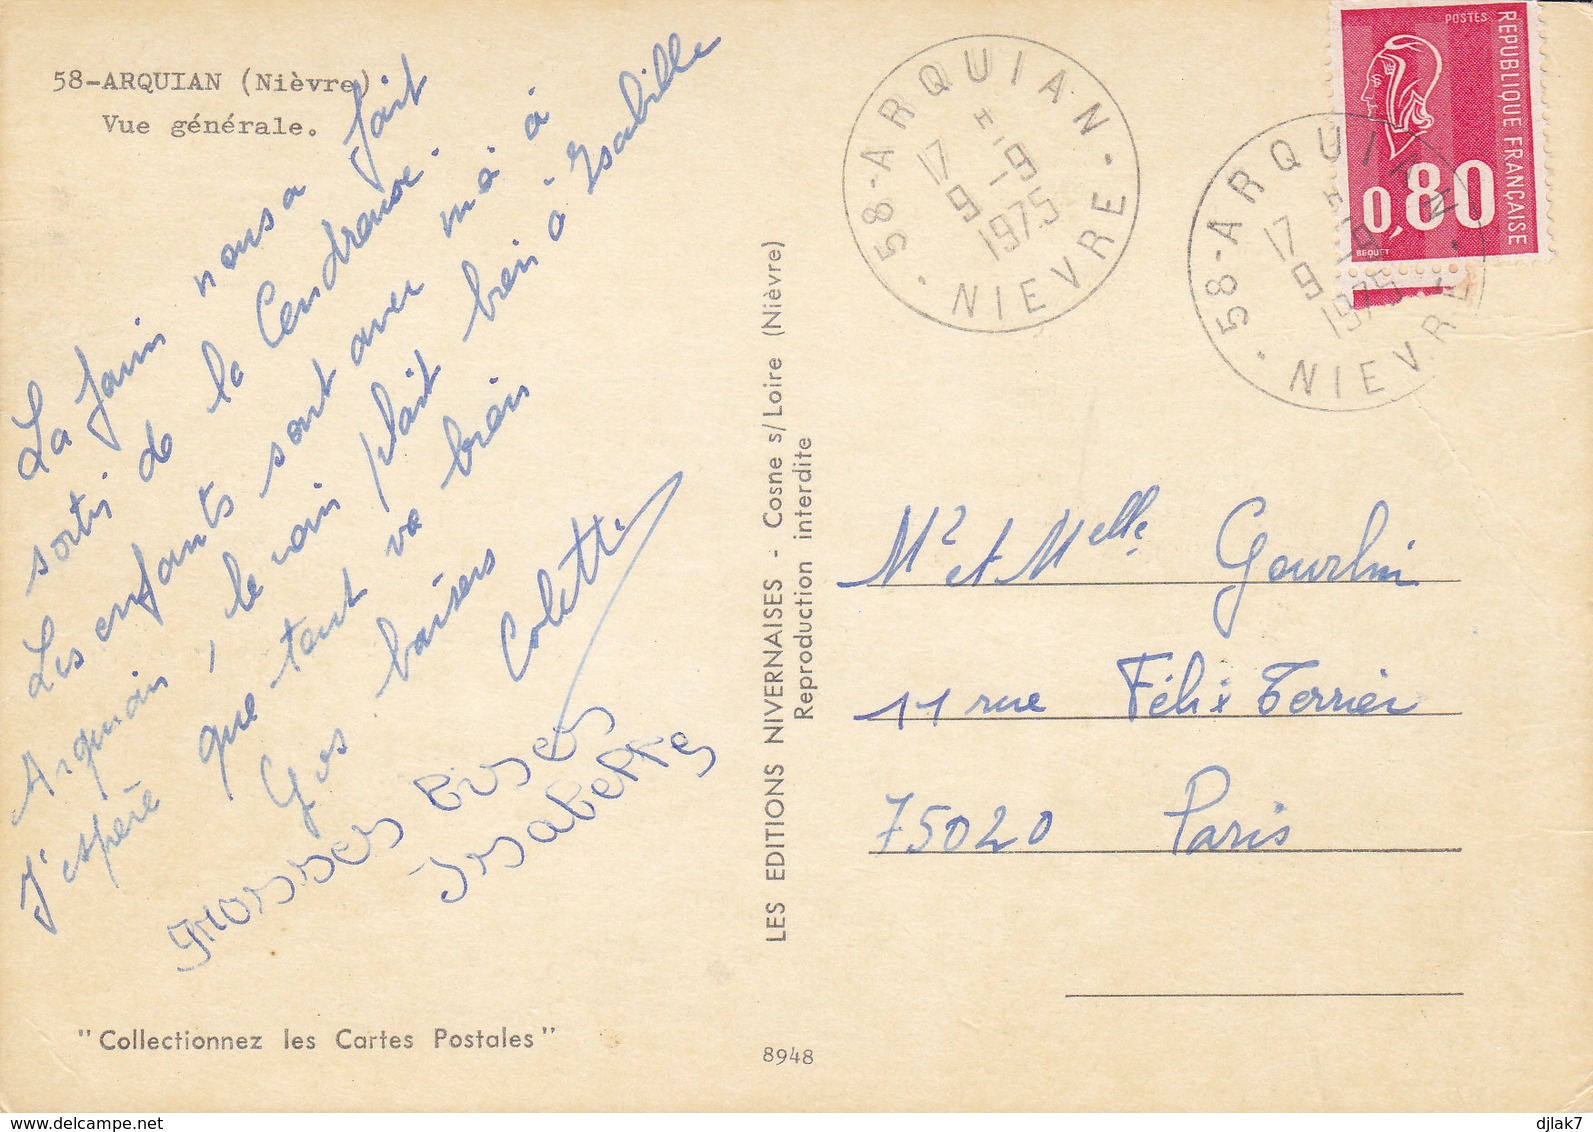 58-ARQUIAN (Nièvre)
Vue générale.
La nous a fait
sortis de la
Les enfants sont avec moi à
Arquian, le coin plait bien à Isabelle
J'espère que tout va bien
Gros baisers Colette
grosses bises
Isabelle
"Collectionnez les Cartes Postales"
LES EDITIONS NIVERNAISES - Cosne s/Loire (Nièvre)
Reproduction interdite
8948
58-ARQUIAN
17 H
9-9
1975
NIEVRE
58-ARQUIAN
17 H
9-9
1975
NIEVRE
POSTES
REPUBLIQUE FRANÇAISE
0,80
BEQUET
Mr et Melle Gourlin
11 rue Félix Terrier
75020 Paris
delcampe.net
djlak7